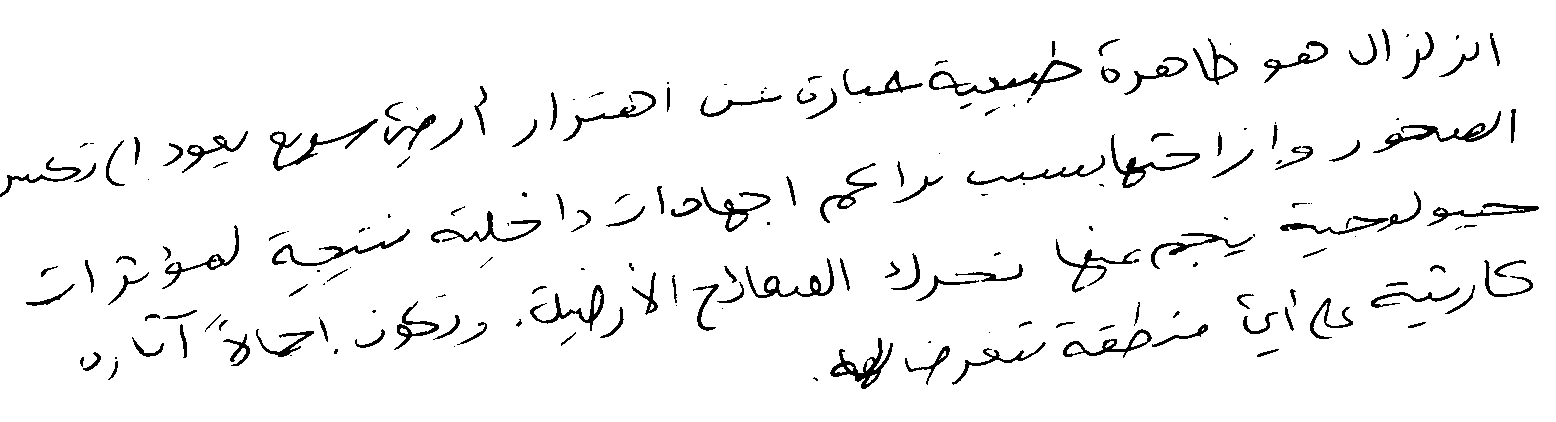 الزلزال هو ظاهرة طبيعية عبارة عن اهتزاز أرضي سريع يعود الى تكسر
الصخور وازاحتها بسبب تراكم اجهادات داخلية نتيجة لمؤثرات
جيولوجية ينجم عنها تحرك الصفائح الأرضية. وتكون اجمالاً آثاره
كارثية على أي منطقة تتعرض له.